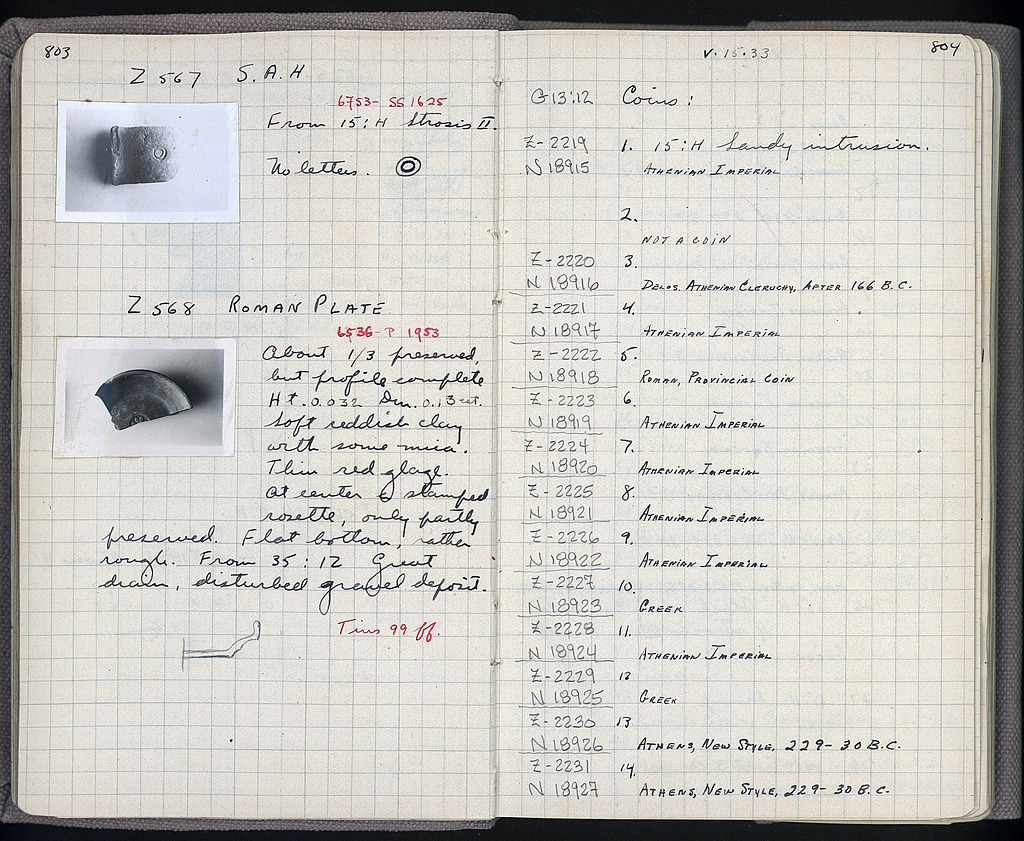 803
Z 567 S.A.H
6753- SS 1625
From 15:H Strosis II.
No letters.
Z 568 ROMAN PLATE
6536-P 1953
About 1/3 preserved,
but profile complete
Ht. 0.032 Dm. 0.13 est.
Soft reddish clay
with some mica.
Thin red glaze.
At center a stamped
rosette, only partly
preserved. Flat bottom, rather
rough. From 35:12 Great
drain, disturbed gravel deposit.
Tins 99 ff.
V.15.33
804
G 13:12 Coins:
Z-2219 1. 15:H Sandy intrusion.
N 18915 ATHENIAN IMPERIAL
2.
NOT A COIN
Z-2220 3.
N 18916 DELOS. ATHENIAN CLERUCHY, AFTER 166 B.C.
Z-2221 4.
N 18917 ATHENIAN IMPERIAL
Z-2222 5.
N 18918 ROMAN, PROVINCIAL COIN
Z-2223 6.
N 18919 ATHENIAN IMPERIAL
Z-2224 7.
N 18920 ATHENIAN IMPERIAL
Z-2225 8.
N 18921 ATHENIAN IMPERIAL
Z-2226 9.
N 18922 ATHENIAN IMPERIAL
Z-2227 10.
N 18923 GREEK
Z-2228 11.
N 18924 ATHENIAN IMPERIAL
Z-2229 12
N 18925 GREEK
Z-2230 13
N 18926 ATHENS, NEW STYLE, 229-30 B.C.
Z-2231 14.
N 18927 ATHENS, NEW STYLE, 229-30 B.C.